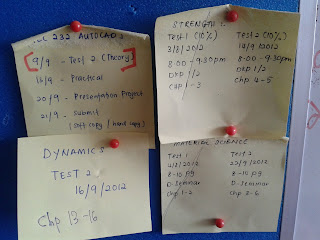 232 AUTOCAD
9/9 - Test 2 (Theory)
16/9 - Practical
20/9 - Presentation Project
21/9 - Submit
(soft copy / hard copy)
DYNAMICS
TEST 2
16/9/2012
Chp 13-16
STRENGTH
Test 1 (10%)
3/8/2012
8.00 - 9.30pm
DKP 1/2
Chp 1-3
Test 2 (10%)
14/9/2012
8.00 - 9.30pm
DKP 1/2
Chp 4-5
MATERIAL SCIENCE
Test 1
8-10 pg
D. Seminar
Chp 1-2
Test 2
23/9/2012
8-10 pg
D. Seminar
Chp 3-6